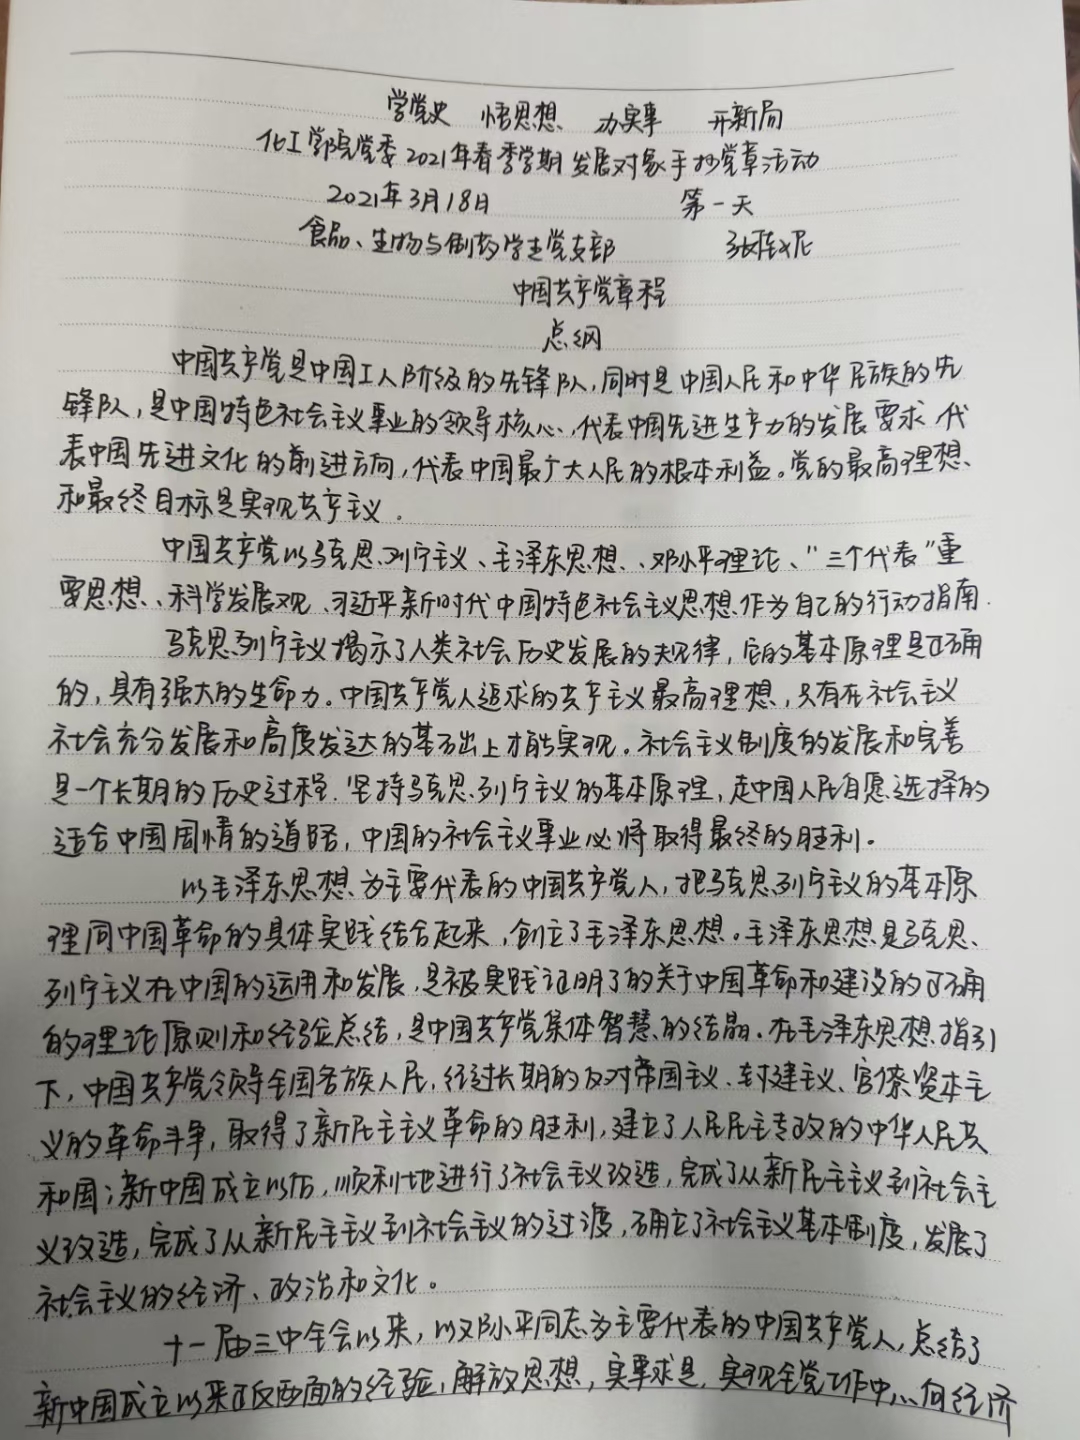 学党史 悟思想 办实事 开新局
化工学院党委2021年春季学期发展对象手抄党章活动
2021年3月18日 第一天
食品、生物与制药学生党支部
中国共产党章程
总纲
中国共产党是中国工人阶级的先锋队,同时是中国人民和中华民族的先
锋队,是中国特色社会主义事业的领导核心,代表中国先进生产力的发展要求,代
表中国先进文化的前进方向,代表中国最广大人民的根本利益。党的最高理想
和最终目标是实现共产主义.
中国共产党以马克思列宁主义、毛泽东思想、邓小平理论、“三个代表”重
要思想、科学发展观、习近平新时代中国特色社会主义思想作为自己的行动指南.
马克思列宁主义揭示了人类社会历史发展的规律,它的基本原理是正确
的,具有强大的生命力。中国共产党人追求的共产主义最高理想,只有在社会主义
社会充分发展和高度发达的基础上才能实现。社会主义制度的发展和完善
是一个长期的历史过程.坚持马克思列宁主义的基本原理,走中国人民自愿选择的
适合中国国情的道路,中国的社会主义事业必将取得最终的胜利。
以毛泽东思想为主要代表的中国共产党人,把马克思列宁主义的基本原
理同中国革命的具体实践结合起来,创立了毛泽东思想。毛泽东思想是马克思
列宁主义在中国的运用和发展,是被实践证明了的关于中国革命和建设的正确
的理论原则和经验总结,是中国共产党集体智慧的结晶.在毛泽东思想指引
下,中国共产党领导全国各族人民,经过长期的反对帝国主义、封建主义、官僚资本主
义的革命斗争,取得了新民主主义革命的胜利,建立了人民民主专政的中华人民共
和国;新中国成立以后,顺利地进行了社会主义改造,完成了从新民主主义到社会主
义改造,完成了从新民主主义到社会主义的过渡,确立了社会主义基本制度,发展了
社会主义的经济、政治和文化。
十一届三中全会以来,以邓小平同志为主要代表的中国共产党人,总结了
新中国成立以来正反两面的经验,解放思想,实事求是,实现全党工作中心向经济